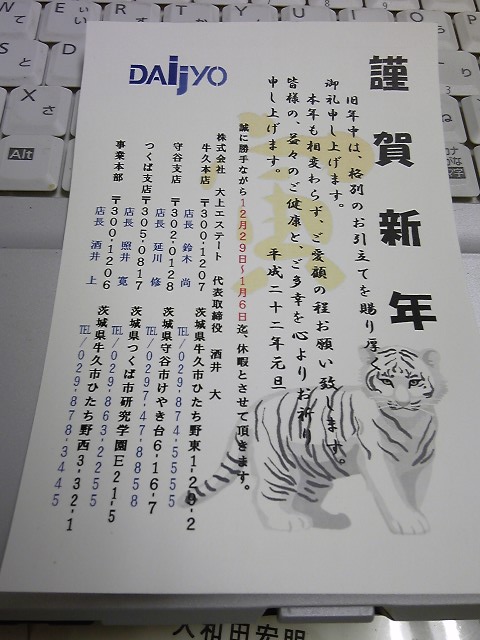 謹賀新年
旧年中は、格別のお引立てを賜り厚
御礼申し上げます。
本年も相変わらず、ご愛顧の程お願い致します。
皆様の、益々のご健康と、ご多幸を心よりお祈り
申し上げます。
平成二十二年元旦
DAijyo
誠に勝手ながら12月29日〜1月6日迄、休暇とさせて頂きます。
株式会社 大上エステート 代表取締役 酒井 大
牛久本店 〒300-1207 茨城県牛久市ひたち野東1-29-2
店長 鈴木 尚 TEL/029-874-5555
守谷支店 〒302-0128 茨城県守谷市けやき台6-16-7
店長 延川 修 TEL/0297-47-8858
つくば支店 〒305-0817 茨城県つくば市研究学園E21-5
店長 照井 寛 TEL/029-863-2255
事業本部 〒300-1206 茨城県牛久市ひたち野西3-32-1
店長 酒井 上 TEL/029-878-3445
W
E
R
T
Y
S
D
X
Alt
と
さ
人和田宏明